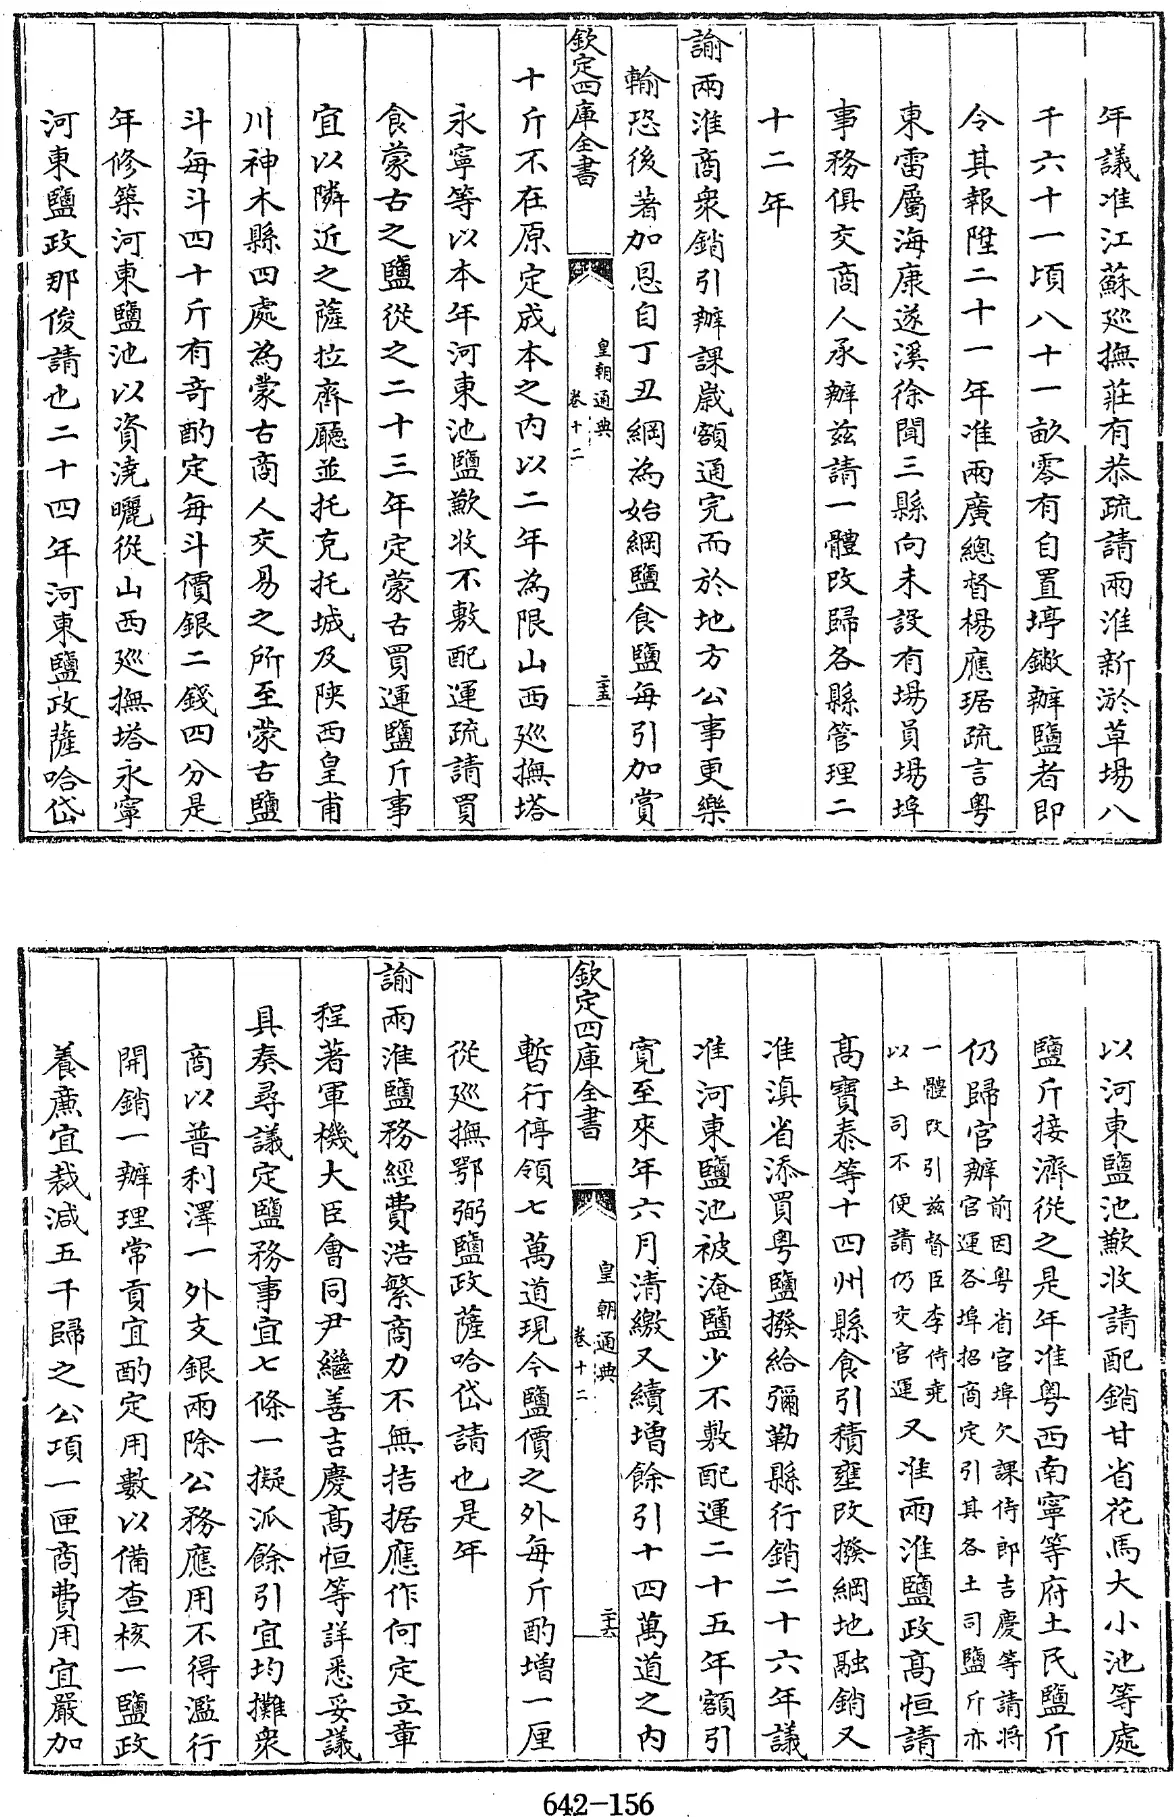 年議准江蘇巡撫莊有恭疏請兩淮新淤草場八
千六十一頃八十一畝零有自置埻鐝辦鹽者即
令其報陞二十一年准兩廣總督楊應琚疏言粤
東雷屬海康遂溪徐聞三縣向未設有場員場埠
事務俱交商人承辦兹請一體改歸各縣管理二
十二年
諭兩淮商衆銷引辦課嵗額通完而於地方公事更樂
輸恐後著加恩自丁丑綱為始綱鹽食鹽每引加賞
欽定四庫全書
皇朝通典
卷十二
二十五
十斤不在原定成本之内以二年為限山西巡撫塔
永寧等以本年河東池鹽歉收不敷配運疏請買
食蒙古之鹽從之二十三年定蒙古買運鹽斤事
宜以隣近之薩拉齊廳並托克托城及陜西皇甫
川神木縣四處為蒙古商人交易之所至蒙古鹽
斗每斗四十斤有奇酌定每斗價銀二錢四分是
年修築河東鹽池以資澆曬從山西巡撫塔永寧
河東鹽政那俊請也二十四年河東鹽政薩哈岱
以河東鹽池歉收請配銷甘省花馬大小池等處
鹽斤接濟從之是年准粤西南寧等府土民鹽斤
仍歸官辦前因粤省官埠欠課侍郎吉慶等請將
官運各埠招商定引其各土司鹽斤亦
一體改引兹督臣李侍堯
以土司不便請仍交官運又准兩淮鹽政高恒請
高寶泰等十四州縣食引積壅改撥綱地融銷又
准滇省添買粤鹽撥給彌勒縣行銷二十六年議
准河東鹽池被淹鹽少不敷配運二十五年額引
寛至來年六月清繳又續增餘引十四萬道之内
欽定四庫全書
皇朝通典
卷十二
二十六
暫行停領七萬道現今鹽價之外每斤酌增一厘
從巡撫鄂弼鹽政薩哈岱請也是年
諭兩淮鹽務經費浩繁商力不無拮据應作何定立章
程著軍機大臣會同尹繼善吉慶高恒等詳悉妥議
具奏尋議定鹽務事宜七條一擬派餘引宜均攤衆
商以普利澤一外支銀兩除公務應用不得濫行
開銷一辦理常貢宜酌定用數以備查核一鹽政
養亷宜裁減五千歸之公項一匣商費用宜嚴加
642-156